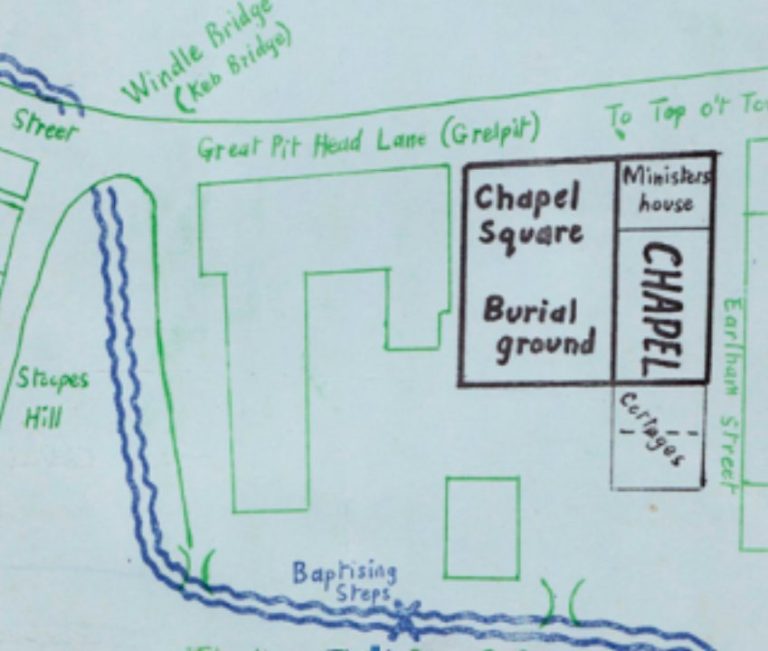 Windle Bridge
(Keb Bridge)
Street
Great Pit Head Lane (Grelpit)
To Top o't
Ministers
house
Chapel
Square
CHAPEL
Burial
ground
Earlham Street
Hill
Cottages
Baptising
Steps